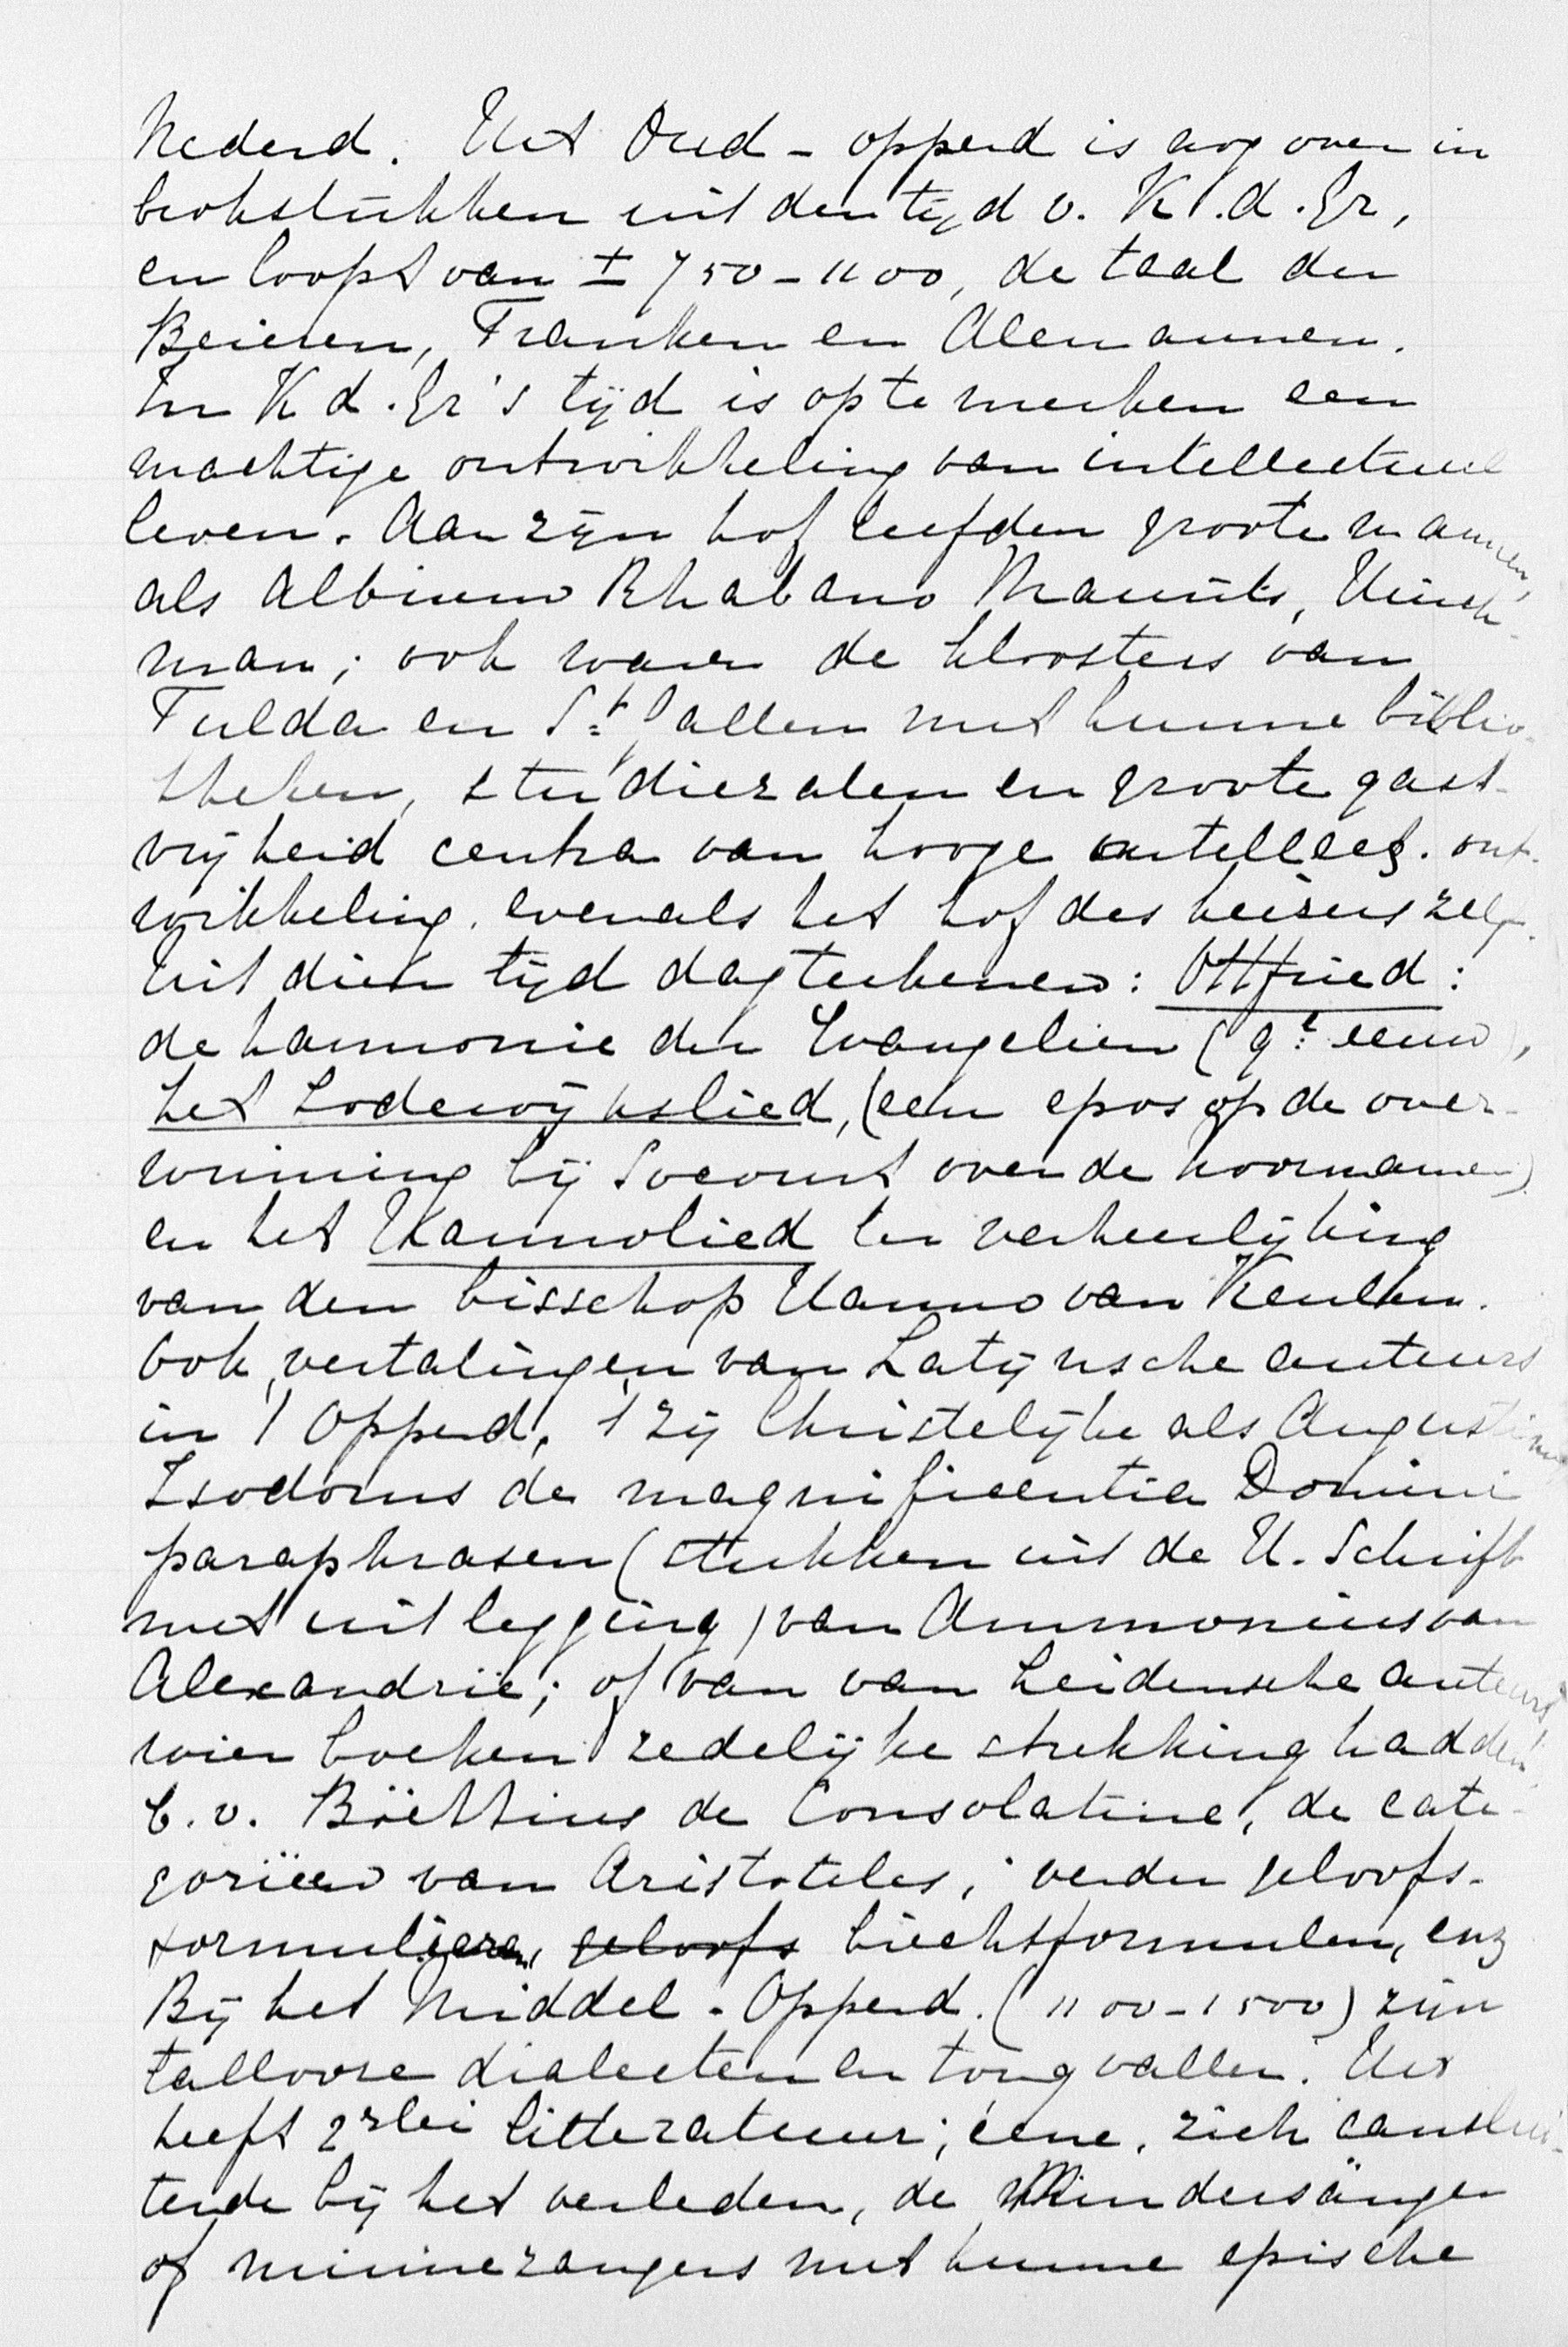 Nederd. Het Oud - opperd is nog over in
brokstukken uit den tijd v. K.d.Gr,
en loopt van ± 750 - 1100, de taal der
Beieren, Franken en Alemannen.
In K d. Gr's tijd is op te merken een
machtige ontwikkeling van intellectueel
leven. Aan zijn hof leefden groote mannen,
als Albinus Rhabano Maurits, Hinck-
man; ook waren de kloosters van
Fulda en St Gallen met hunne biblio-
theken, studiezalen en groote gast-
vrijheid centra van hooge intellect. ont-
wikkeling. evenals het hof des keizers zelf.
Uit dien tijd dagteekenen: Ottfried:
de harmonie der Evangelien (9e eeuw),
het Lodewijkslied, (een epos op de over-
winning bij Socourt over de Noormannen)
en het Hannolied ter verheerlijking
van den bisschop Hanno van Keulen.
Ook vertalingen van Latijnsche auteurs
in 't Opperd, 't zij Christelijke als Augustinus
Isodorus de magnificentia Domini
paraphrasen (stukken uit de H. Schrift
met uitlegging) van Ammonius van
Alexandrië; of van van Heidensche auteurs
wier boeken zedelijke strekking hadden.
b.v. Böethius de Consolatine, de cate-
gorieën van Aristoteles; verder geloofs-
formulieren, geloofs biechtformulen, enz
Bij het Middel - Opperd. (1100 - 1500) zijn
tallooze dialecten en tongvallen. Het
heeft 2erlei litteratuur; eene, zich aanslui-
tende bij het verleden, de Mindersänger
of minnezangers met hunne epische